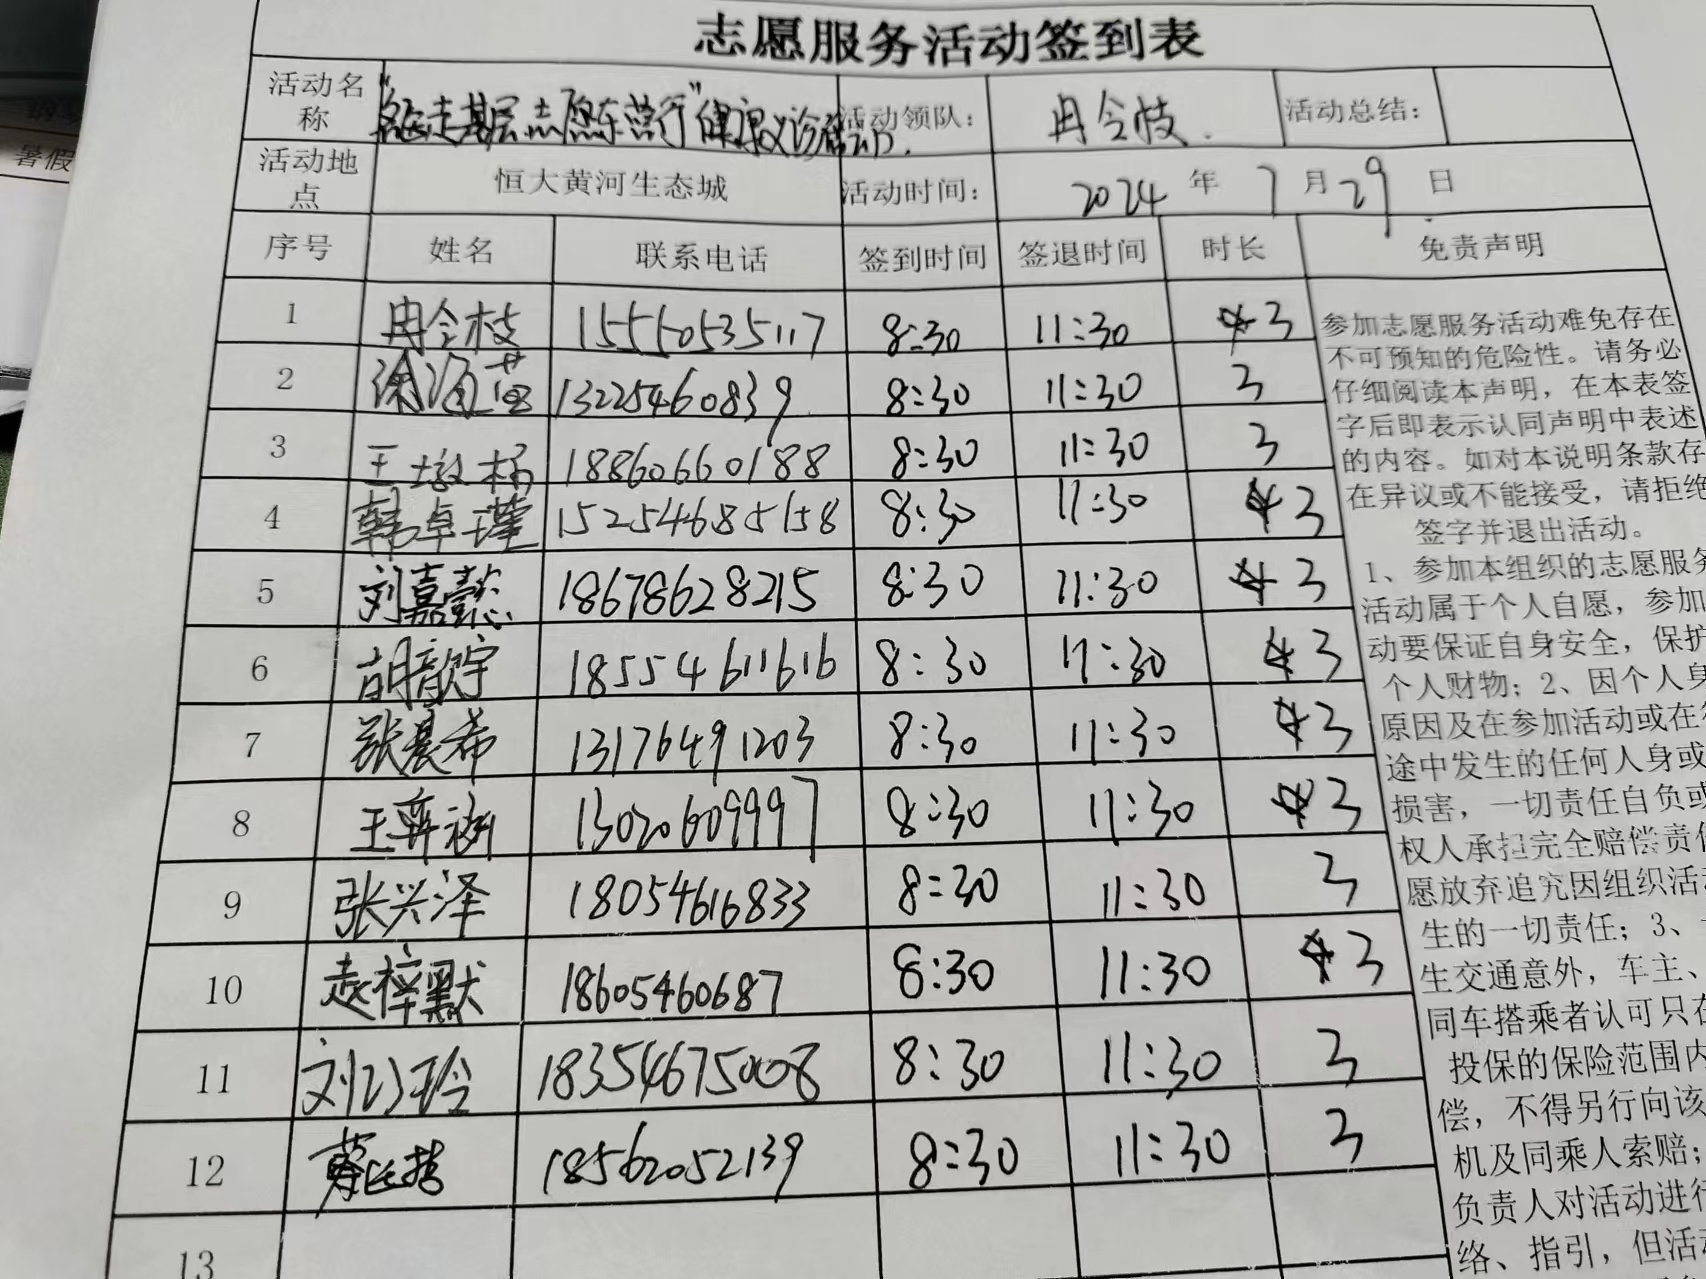 志愿服务活动签到表
活动名称 "名医走基层志愿东营行"健康义诊活动. 活动领队: 冉令枝. 活动总结:
活动地点 恒大黄河生态城 活动时间: 2024 年 7 月 29 日
序号 姓名 联系电话 签到时间 签退时间 时长 免责声明
1 冉令枝 15550535117 8:30 11:30 3
2 13225460839 8:30 11:30 3
3 王墩杨 18860660188 8:30 11:30 3
4 韩卓瑾 15254685158 8:30 11:30 3
5 刘嘉懿 18678628215 8:30 11:30 3
6 胡歆宇 18554611616 8:30 11:30 3
7 张晨希 13176491203 8:30 11:30 3
8 王弈涵 13020609997 8:30 11:30 3
9 张兴泽 18054616833 8:30 11:30 3
10 赵梓默 18605460687 8:30 11:30 3
11 刘玲 18354675008 8:30 11:30 3
12 18562052139 8:30 11:30 3
13
参加志愿服务活动难免存在
不可预知的危险性。请务必
仔细阅读本声明，在本表签
字后即表示认同声明中表述
的内容。如对本说明条款存
在异议或不能接受，请拒绝
签字并退出活动。
1、参加本组织的志愿服务
活动属于个人自愿，参加
动要保证自身安全，保护
个人财物；2、因个人身
原因及在参加活动或在
途中发生的任何人身或
损害，一切责任自负或
权人承担完全赔偿责任
愿放弃追究因组织活动
生的一切责任；3、
生交通意外，车主、
同车搭乘者认可只在
投保的保险范围内
偿，不得另行向该
机及同乘人索赔；
负责人对活动进行
络、指引，但活动
暑假